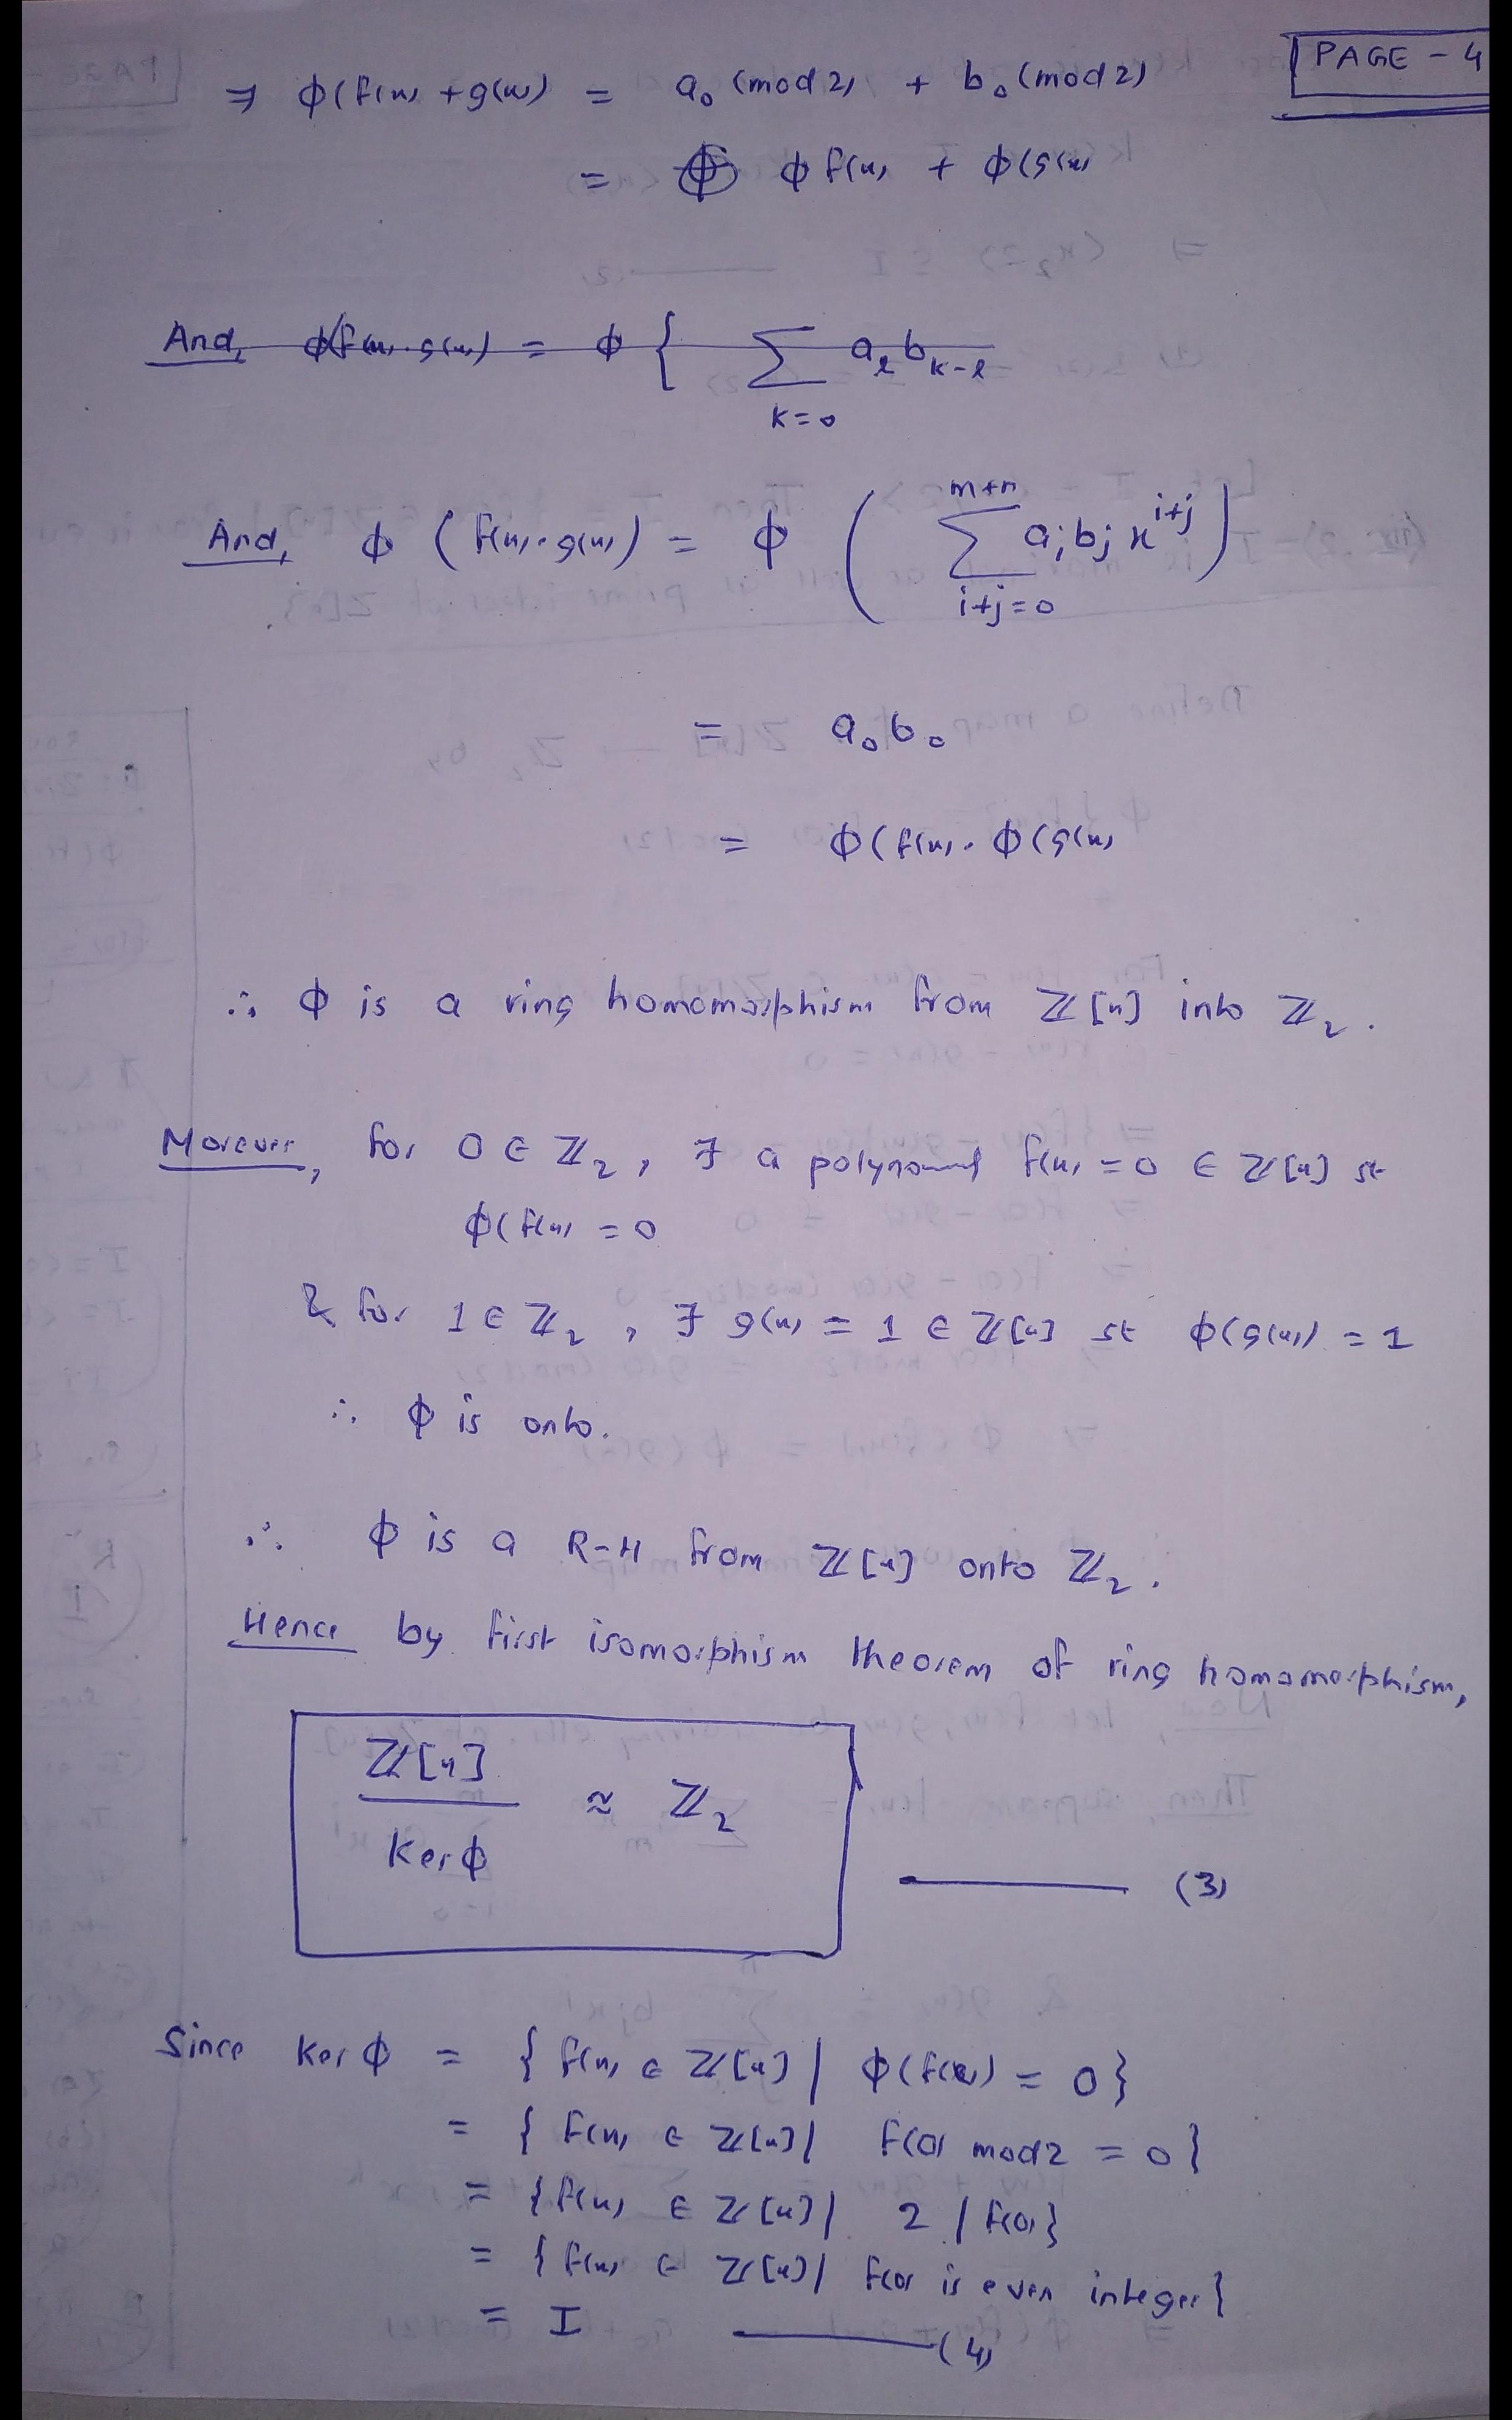 PAGE - 4
⇒ ϕ(f(x) + g(x)) = a₀ (mod 2) + b₀ (mod 2)
= ϕ f(x) + ϕ(g(x)
And, ϕ(f(x).g(x)) = ϕ { ∑ k=0 aₗ bₖ₋ₗ
And, ϕ (f(x).g(x)) = ϕ ( ∑_{i+j=0}^{m+n} aᵢbⱼ x^{i+j} )
= a₀b₀
= ϕ(f(x). ϕ(g(x)
∴ ϕ is a ring homomorphism from ℤ[x] into ℤ₂.
Morever, for 0 ∈ ℤ₂, ∃ a polynomial f(x) = 0 ∈ ℤ[x] st
ϕ(f(x) = 0
& for 1 ∈ ℤ₂, ∃ g(x) = 1 ∈ ℤ[x] st ϕ(g(x)) = 1
∴ ϕ is onto.
∴ ϕ is a R-H from ℤ[x] onto ℤ₂.
Hence by first isomorphism theorem of ring homomorphism,
ℤ[x] / Ker ϕ ≈ ℤ₂ ——— (3)
Since Ker ϕ = { f(x) ∈ ℤ[x] | ϕ(f(x)) = 0 }
= { f(x) ∈ ℤ[x] | f(0) mod 2 = 0 }
= { f(x) ∈ ℤ[x] | 2 | f(0) }
= { f(x) ∈ ℤ[x] | f(0) is even integer }
= I ——— (4)